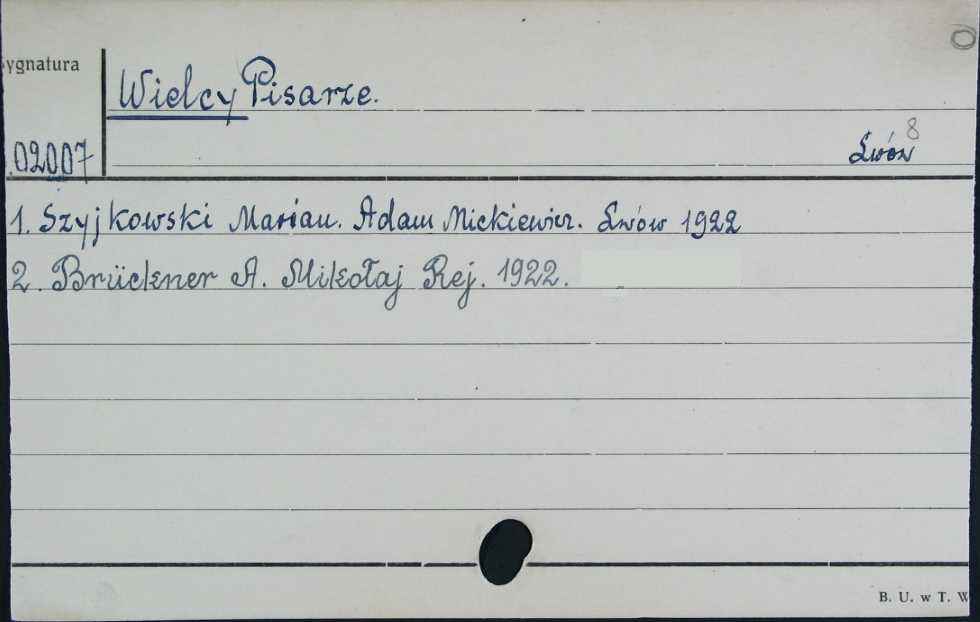 ygnatura
Wielcy Pisarze.
8
02007
Lwów
1. Szyjkowski Marian. Adam Mickiewicz. Lwów 1922
2. Brückner A. Mikołaj Rej. 1922.
B. U. w T. W